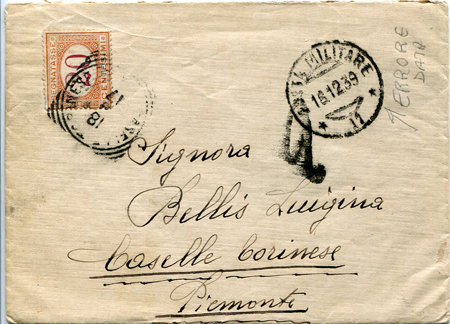 SEGNATASSE
20
CENTESIMI
POSTA MILITARE
16.12.39
* 17 *
ERRORE
DATA
18
T
Signora
Bellis Luigina
Caselle Torinese
Piemonte